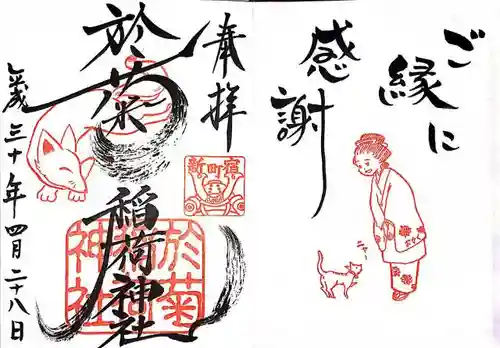 ご縁に
感謝
奉拝
於菊
稲荷神社
新町宿
於菊
稲荷
神社
平成三十年四月二十八日